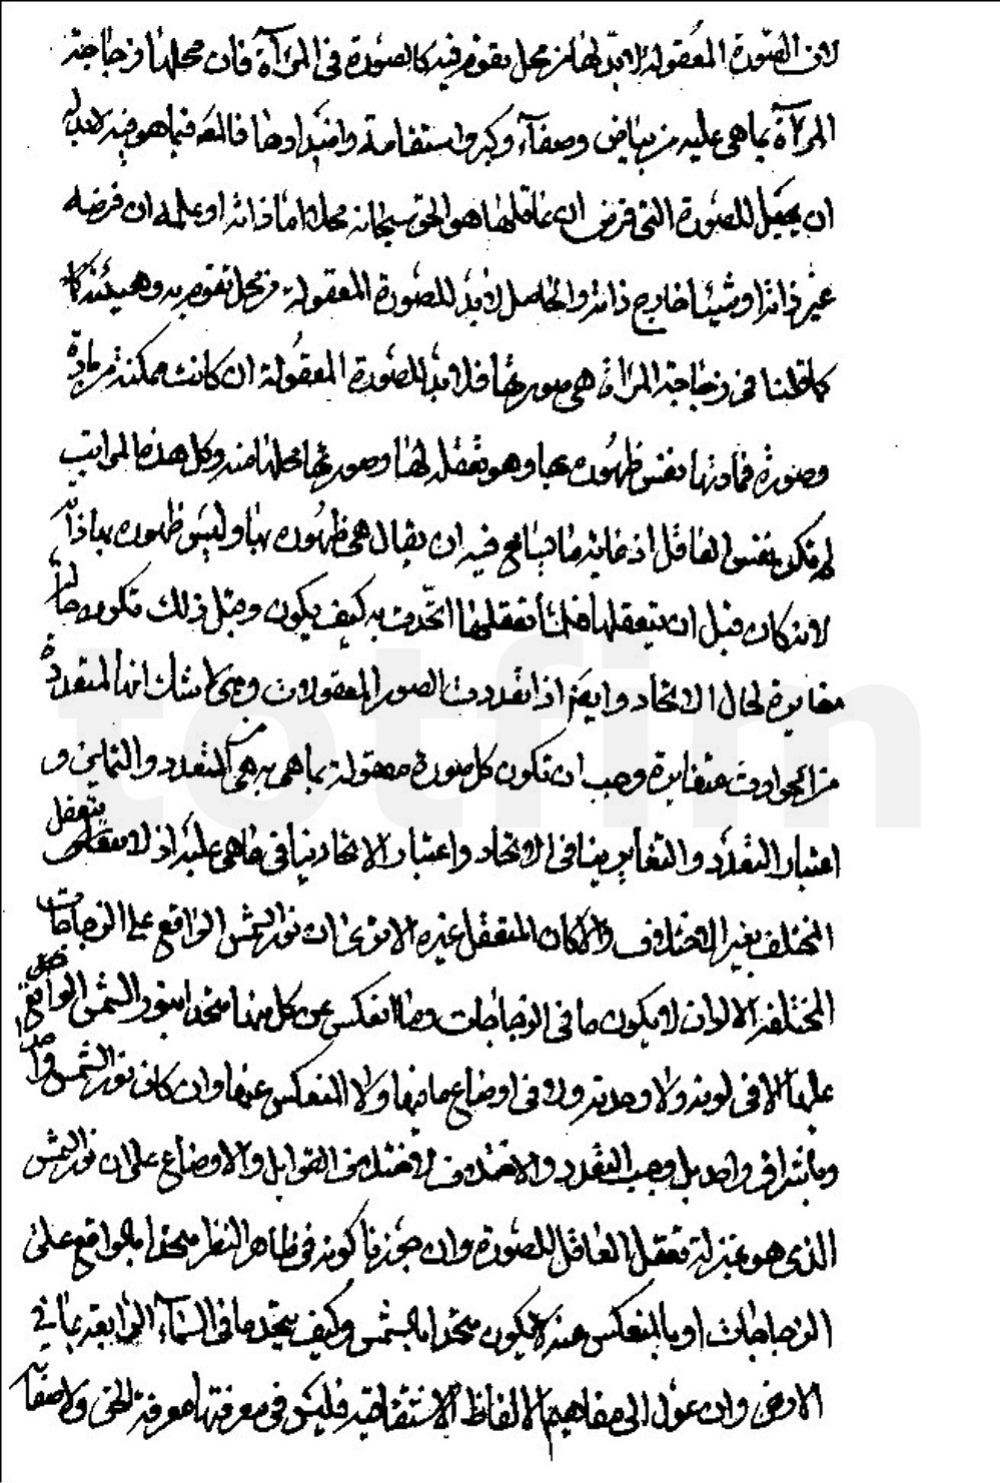 لان الصورة المعقولة لابد لها من محل تقوم فيه كالصورة فى المرآة فان محلها زجاجة
المرآة بما هى عليه من بياض وصفآء وكبر واستقامة واضدادها فالله فيما هو فيه لابد له
ان يجعل للصورة التى فرض ان عاقلها هو الحق سبحانه محلا اما ذاته او علمه ان فرضه
غير ذاته او شيئا خارج ذاته والحاصل لابد للصورة المعقولة من محل تقوم به وهيئته كا
كما قلنا فى زجاجة المرآة هى صورتها فلابد للصورة المعقولة ان كانت ممكنة من مادة
وصورة فمادتها نفس ظهوره بها وهو تعقله لها وصورتها محلها منه وكل هذه المراتب
لم تكن نفس العاقل اذ غاية ما يتسامح فيه ان يقال هى ظهوره بها وليس ظهوره بها ذاته
لانه كان قبل ان يتعقلها فلما تعقلها اتحدت به كيف يكون وقبل ذلك تكون حاله
مغايرة لحال الاتحاد وايضا اذا تعددت الصور المعقولات وهى لا شك انها المتعددة
من الحوادث متغايرة وجب ان تكون كل صورة معقولة بما هى به هى من التعدد والتمايز و
اعتبار التعدد والتغاير ينافى الاتحاد واعتبار الاتحاد ينافى ما هى عليه اذ لا يتعقل
المختلف بغير الاختلاف والا كان المتعقل غيره الا ترى ان نور الشمس الواقع على الزجاجات
المختلفة الالوان لا يكون ما فى الزجاجات وما انعكس عن كل منها متحدا بنور الشمس الواقع
عليها لا فى لونه ولا وحدته ولا فى اوضاع ما فيها ولا المنعكس عنها وان كان نور الشمس واحدا
ومباشرا فى واحد بل وجب التعدد والاختلاف لاختلاف القوابل والاوضاع على ان نور الشمس
الذى هو بمنزلة تعقل العاقل للصورة وان جوزنا كونه فى ظاهر النظر متحدا بالواقع على
الزجاجات او بالمنعكس عنه لا يكون متحدا بالشمس وكيف يتحد ما فى السمآء الرابعة بما فى
الارض وان عول الى مفاهيم الالفاظ الاشتقاقية فليس فى معرفتها معرفة الحق ولا صفآ